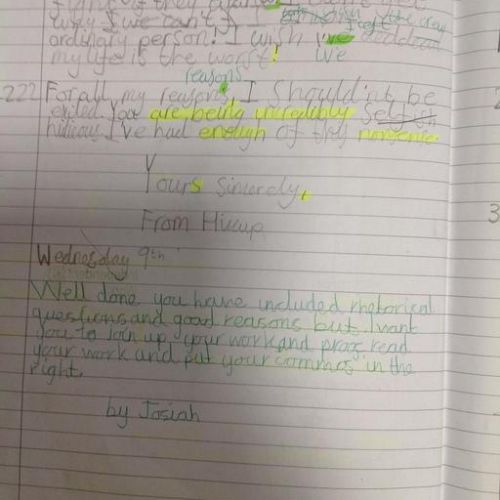 why I we can't
ordingly person! I wish we
my life is the worst! we
reasons
222 For all my reasons, I Should'nt be
exiled. You are being incredibly Selfish
hidious I've had enough of this nonsense
Yours sincerely,
From Hiccup
Wednesday 9th
Well done you have included rhetorical
questions and good reasons but I want
you to Join up your work and proof read
your work and put your commas in the
right.
by Josiah
3